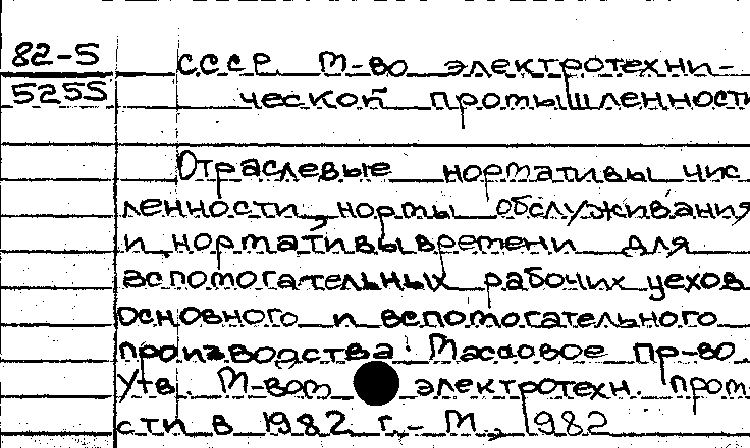 82-5 СССР. М-во электротехни-
5255 ческой промышленности
Отраслевые нормативы чис
ленности, нормы обслуживания
и нормативы времени для
вспомогательных рабочих цехов
основного и вспомогательного
производства. Массовое пр-во
Утв. М-вом электротехн. пром
сти в 1982 г.- М., 1982